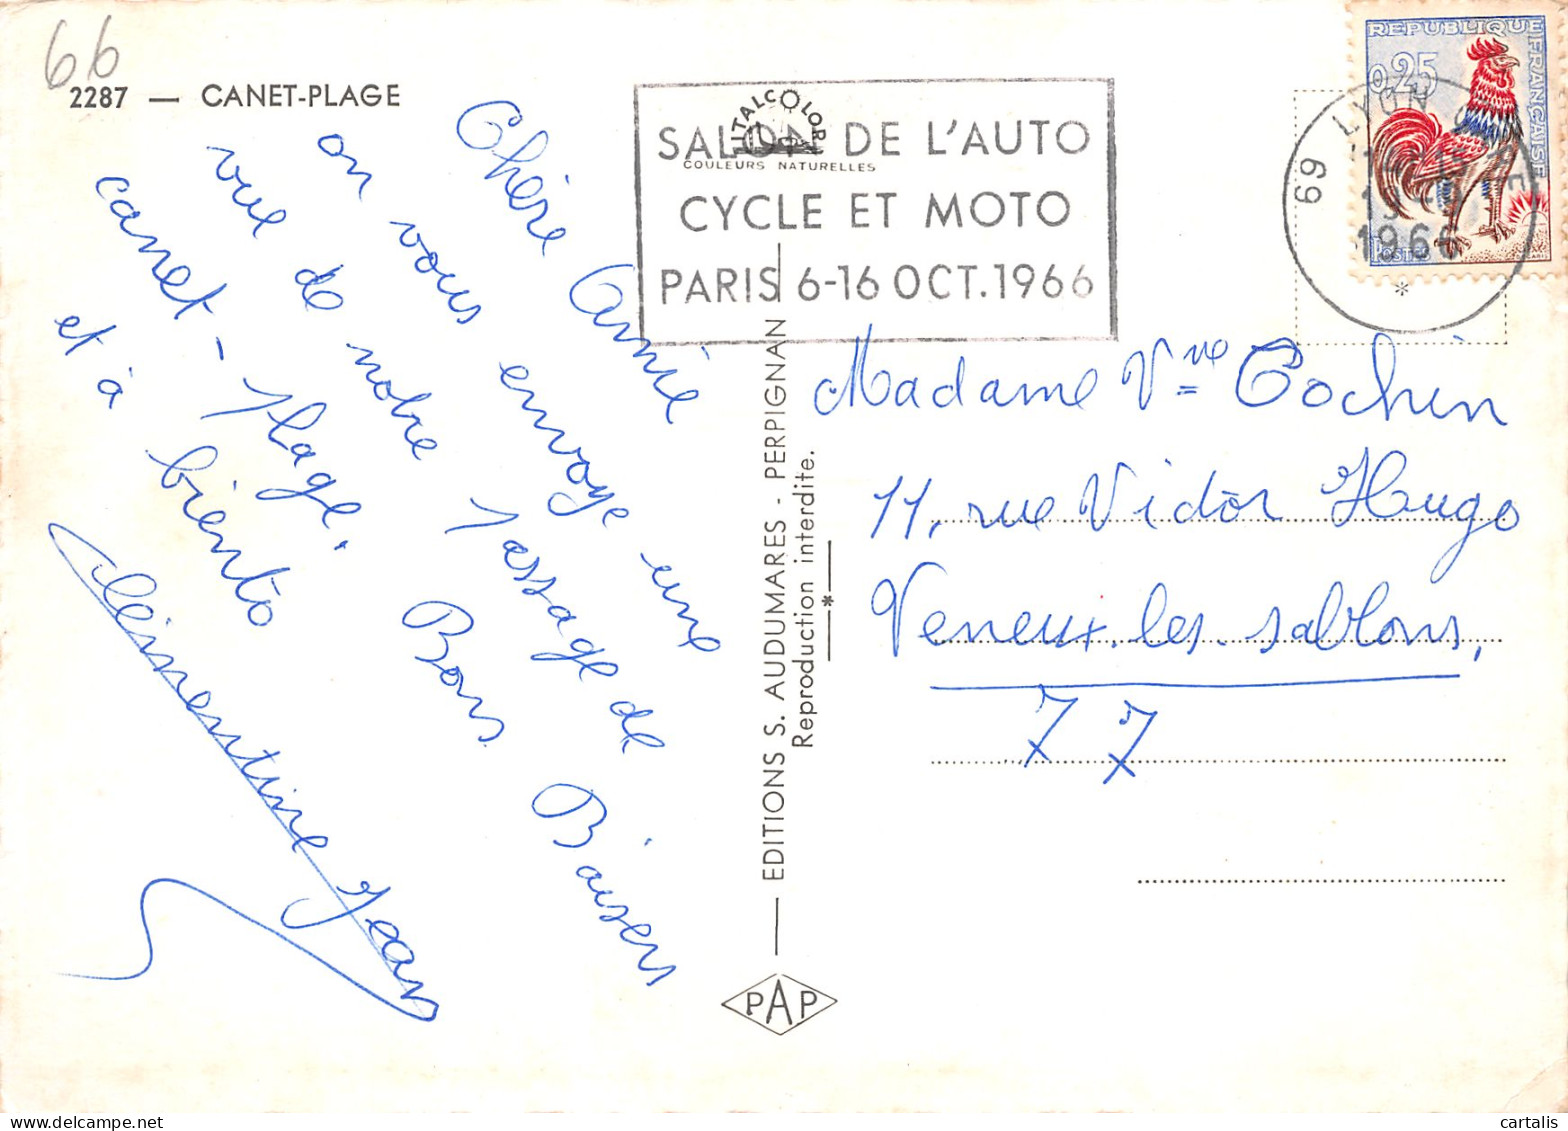 66
2287 — CANET-PLAGE
Chère Annie
on vous envoye une
vue de notre Passage de
canet-Plage. Bons Baisers
et à bientô
Clémentine Jean
ITALCOLOR
COULEURS NATURELLES
SALON DE L'AUTO
CYCLE ET MOTO
PARIS 6-16 OCT. 1966
REPUBLIQUE FRANÇAISE
0,25
POSTES
69 LYON
1966
*
EDITIONS S. AUDUMARES - PERPIGNAN
Reproduction interdite.
*
PAP
Madame Vve Cochin
11, rue Victor Hugo
Veneux-les-sablons,
77
cartalis